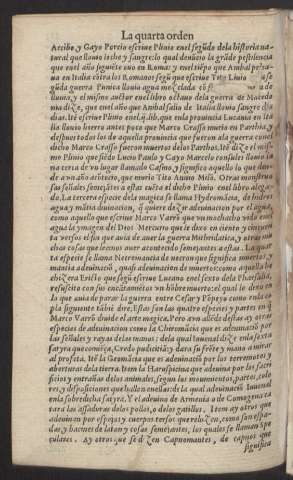 La quarta orden
Atribo, y Gayo Porcio escriue Plinio enel segũdo dela historia na-
tural que llouio leche y sangre: lo qual denũcio la grãde pestilencia
que enel año siguiẽte vuo en Roma: y enel tiẽpo que Anibal pelea-
ua en Italia cõtra los Romanos segũ que escriue Tito Liuio
guda guerra Punica llouia agua mezclada cõ de
lluuia, y el mismo auctor enel libro octauo dela guerra de Macedo
nia dize, que enel año que Anibal salio de Italia llouio sangre
dias. Itẽ escriue Plinio enel. lib. que enla prouincia Lucania en Ita
lia llouio hierro antes poco que Marco Crasso murio en Parthia, y
despues todos los de aquella prouincia que fueron ala guerra conel
dicho Marco Crasso fueron muertos delos Parthos. Itẽ dize el mis-
mo Plinio que siẽdo Lucio Paulo y Gayo Marcelo consules llouio la
na cerca de vn lugar llamado
de a vn año acõtecio, que murio Tito Annio Milõ. Otras monstruo
sas señales semejãtes a estas cuẽta el dicho Plinio enel libro alega-
do. La tercera especie dela magica se llama Hydromãcia, de hidros
agua y mãtia diuinacion, q̃ quiere dezir adeuinacion por el agua,
como aquello que escriue Marco Varrõ que vn mochacho vido enel
agua la ymagen del Dios Mercurio que le dixo en ciento y cinquen
ta versos el fin que auia de auer la guerra Mithridatica, y otras mu
chas cosas que leemos auer acontecido semejantes a estas. La quar
ta especie se llama Netromancia de necron que significa muertos, y
mantia adeuinaciõ, quasi adeuinacion de muertos: como aquella he
chizera Erictho que segũ escriue Lucano enel sexto dela Pharsalia,
resuscito con sus encãtamẽtos vn hõbre muerto: el qual le dixo en
lo que auia de parar la guerra entre Cesar y Põpeyo como enla co-
pla siguiente tãbiẽ dire. Estas son las quatro especies y partes en q̃
Marco Varrõ diuide el arte magica. Pero avn allẽde destas ay otras
especies de adeuinacion como la Chiromãcia que es adeuinaciõ por
las señales y rayas delas manos: dela qual Iuuenal dize enla sexta
satyra que comiẽça, Credo pudicitiã: y dara su frẽte y mano a mirar
al profeta. Itẽ la Geomãcia que es adeuinaciõ por los terremotos y
aberturas dela tierra. Item la Haruspicina que adeuina por los sacri
ficios y entrañas delos animales, segun los mouimientos, partes, colo
res, y disposiciones que hallen enellas: dela qual adeuinaciõ Iuuenal
enla sobredicha satyra, Y el adeuino de Armenia o de Comagena ca
tara las assaduras delos pollos, o delos gatillos. Item ay otros que
adeuinan por espejos y cuerpos tersos que relũzen, como son espa-
das, y bacines de laton y cosas semejantes, los quales se llaman Spe
culatores. Ay otros que se dizen Capnomantes, de capnos que
significa